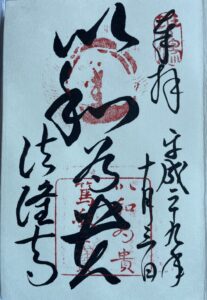 奉拝
平成二十九年
十月三日
以和為貴
法隆寺
以和為貴